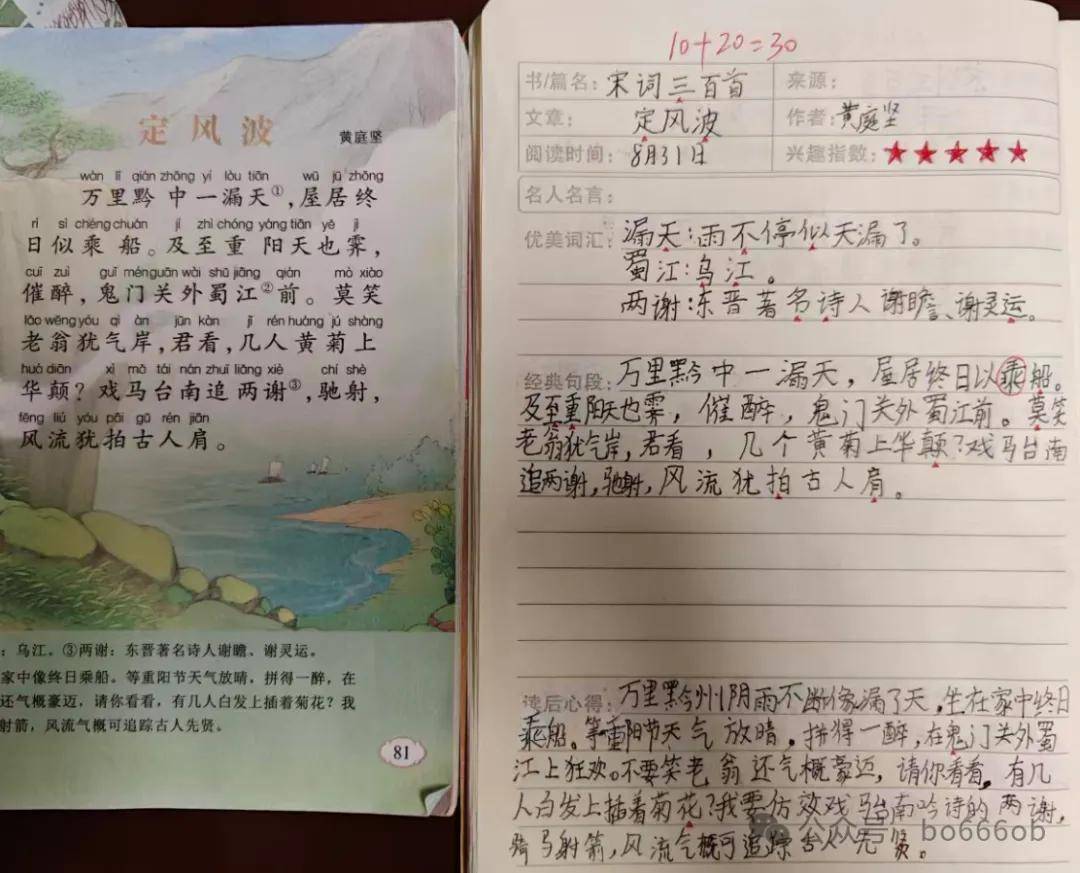 定风波
黄庭坚
wàn lǐ qián zhōng yí lòu tiān wū jū zhōng
万里黔中一漏天①，屋居终
rì sì chéng chuán jí zhì chóng yáng tiān yě jì
日似乘船。及至重阳天也霁，
cuī zuì guǐ mén guān wài shǔ jiāng qián mò xiào
催醉，鬼门关外蜀江②前。莫笑
lǎo wēng yóu qì àn jūn kàn jǐ rén huáng jú shàng
老翁犹气岸，君看，几人黄菊上
huá diān xì mǎ tái nán zhuī liǎng xiè chí shè
华颠？戏马台南追两谢③，驰射，
fēng liú yóu pāi gǔ rén jiān
风流犹拍古人肩。
：乌江。③两谢：东晋著名诗人谢瞻、谢灵运。
家中像终日乘船。等重阳节天气放晴，拼得一醉，在
还气概豪迈，请你看看，有几人白发上插着菊花？我
射箭，风流气概可追踪古人先贤。
81
10+20=30
书/篇名：宋词三百首 来源：
文章：定风波 作者：黄庭坚
阅读时间：8月31日 兴趣指数：★★★★★
名人名言：
优美词汇：漏天：雨不停似天漏了。
蜀江：乌江。
两谢：东晋著名诗人谢瞻、谢灵运。
经典句段：万里黔中一漏天，屋居终日以乘船。
及至重阳天也霁，催醉，鬼门关外蜀江前。莫笑
老翁犹气岸，君看，几个黄菊上华颠？戏马台南
追两谢，驰射，风流犹拍古人肩。
读后心得：万里黔州阴雨不断像漏了天，坐在家中终日
乘船。等重阳节天气放晴。拼得一醉，在鬼门关外蜀
江上狂欢。不要笑老翁还气概豪迈，请你看看，有几
人白发上插着菊花？我要仿效戏马台南吟诗的两谢，
骑马射箭，风流气概可追踪古人先贤。
公众号 bo666ob